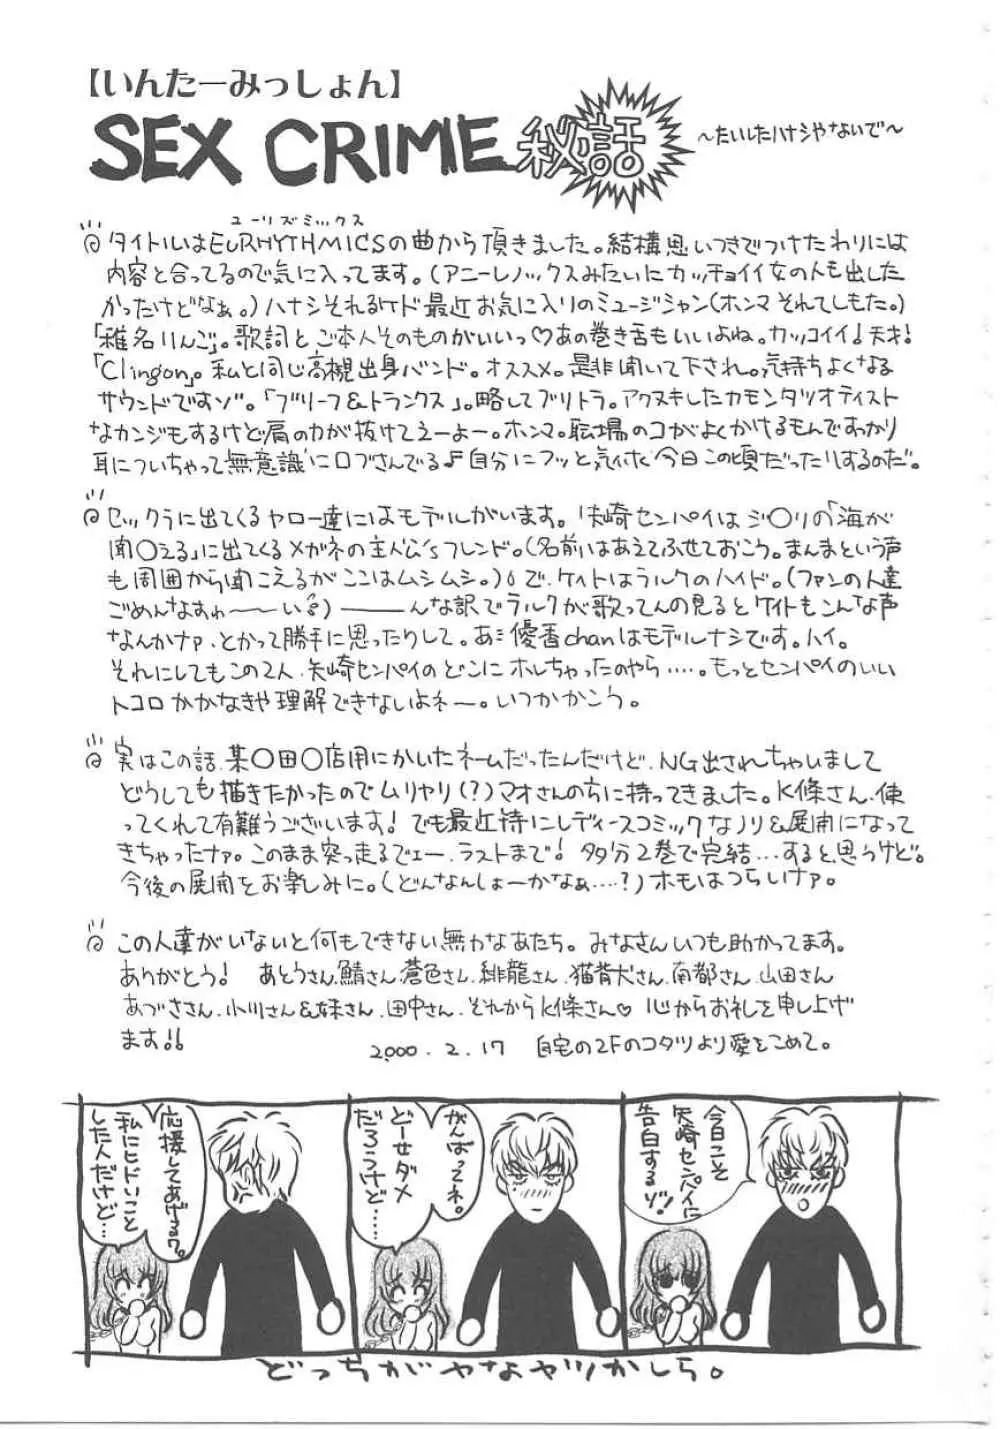 【いんたーみっしょん】
SEX CRIME 秘話
～たいしたハナシやないで～
ユーリズミックス
タイトルはEURHYTHMICSの曲から頂きました。結構思いつきでつけたわりには
内容と合ってるので気に入ってます。(アニーレノックスみたいにカッチョイイ女の人も出した
かったけどなぁ。)ハナシそれるケド最近お気に入りのミュージシャン(ホンマそれてしもた。)
「椎名りんご」。歌詞とご本人そのものがいいっ♡あの巻き舌もいいよね。カッコイイ!天才!
「Clingon」。私と同じ高槻出身バンド。オススメ。是非聞いて下され。気持ちよくなる
サウンドですゾ。「ブリーフ&トランクス」。略してブリトラ。アクヌキしたカモンタツオテイスト
なカンジもするけど肩の力が抜けてえーよー。ホンマ。職場のコがよくかけるモんですっかり
耳についちゃって無意識に口ずさんでる♪自分にフッと気付く今日この頃だったりするのだ。
セックラに出てくるヤロー達にはモデルがいます。矢崎センパイはジ〇リの「海が
聞〇える」に出てくるメガネの主人公'sフレンド。(名前はあえてふせておこう。まんまという声
も周囲から聞こえるがここはムシムシ。)で、ケイトはラルクのハイド。(ファンの人達
ごめんなすわ～～い)――んな訳でラルクが歌ってんの見るとケイトもこんな声
なんかナァ、とかって勝手に思ったりして。あ、優香chanはモデルナシです。ハイ。
それにしてもこの2人、矢崎センパイのどこにホレちゃったのやら……。もっとセンパイのいい
トコロかかなきゃ理解できないよネー。いつかかこう。
実はこの話、某〇田〇店用にかいたネームだったんだけど、NG出されちゃいまして
どうしても描きたかったのでムリヤリ(?)マオさんのちに持ってきました。K條さん、使
ってくれて有難うございます!でも最近特にレディースコミックなノリ&展開になって
きちゃったナァ。このまま突っ走るでェー、ラストまで!多分2巻で完結…すると思うけど。
今後の展開をお楽しみに。(どんなんしょーかなぁ…?)ホモはつらいけァ。
この人達がいないと何もできない無力なあたち。みなさんいつも助かってます。
ありがとう! あとうさん、鯖さん、蒼色さん、緋龍さん、猫背犬さん、南都さん、山田さん
あづささん、小川さん&妹さん、田中さん、それからK條さん♡ 心からお礼を申し上げ
ます!!
2000.2.17 自宅の2Fのコタツより愛をこめて。
今日こそ
矢崎センパイに
告白するゾ!
がんばってネ。
どーせダメ
だろうけど…
応援してあげるワ。
私にヒドいこと
した人だけど…
どっちがヤなヤツかしら。